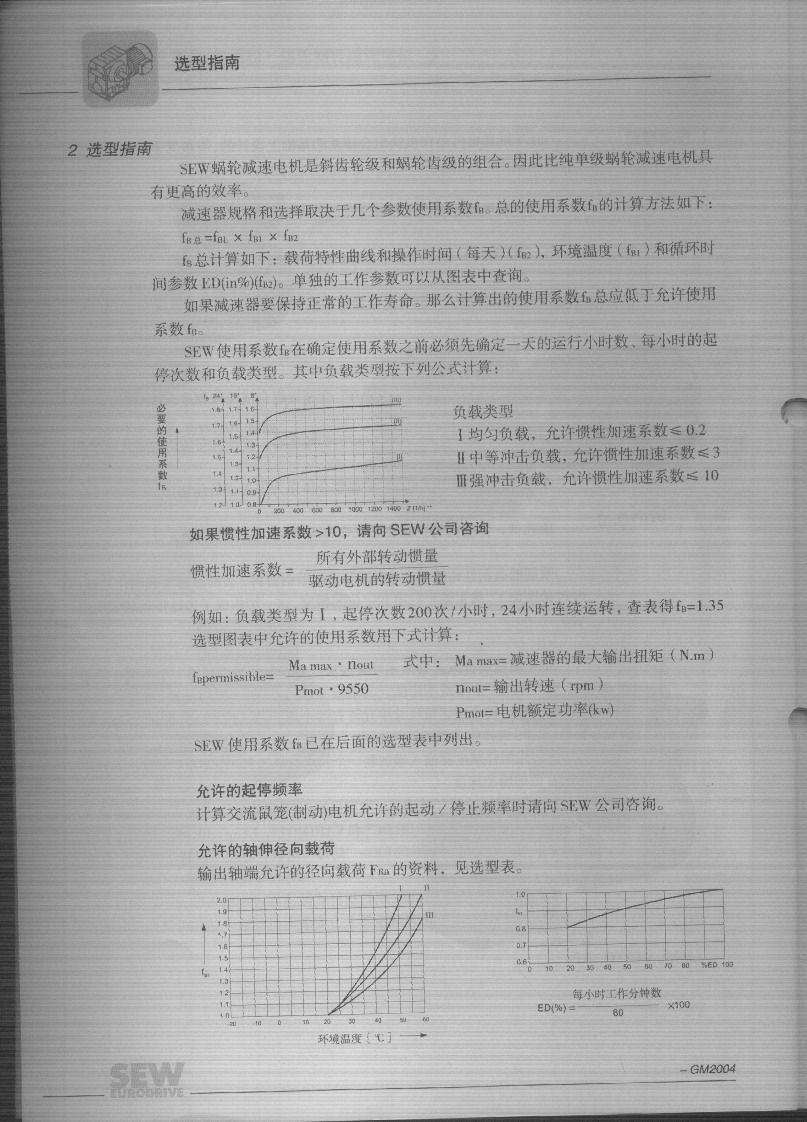 选型指南
2 选型指南
SEW蜗轮减速电机是斜齿轮级和蜗轮齿级的组合。因此比纯单级蜗轮减速电机具
有更高的效率。
减速器规格和选择取决于几个参数使用系数fB。总的使用系数fB的计算方法如下：
fB总=fBL × fB1 × fB2
fB总计算如下：载荷特性曲线和操作时间（每天）（fB2），环境温度（fB1）和循环时
间参数ED(in%)(fB2)。单独的工作参数可以从图表中查询。
如果减速器要保持正常的工作寿命。那么计算出的使用系数fB总应低于允许使用
系数fB。
SEW使用系数fB在确定使用系数之前必须先确定一天的运行小时数、每小时的起
停次数和负载类型。其中负载类型按下列公式计算：
必要的使用系数fB
fB 24* 16* 8*
1.8 1.7 1.6
1.7 1.6 1.5
1.6 1.5 1.4
1.5 1.4 1.3
1.4 1.3 1.2
1.2 1.1
1.3 1.1 1.0 0.9
1.2 1.0 0.8
(III)
(II)
(I)
0 200 400 600 800 1000 1200 1400 Z [1/h] **
负载类型
I 均匀负载，允许惯性加速系数≤0.2
II 中等冲击负载，允许惯性加速系数≤3
III 强冲击负载，允许惯性加速系数≤10
如果惯性加速系数>10，请向SEW公司咨询
惯性加速系数=
所有外部转动惯量
驱动电机的转动惯量
例如：负载类型为I，起停次数200次/小时，24小时连续运转，查表得fB=1.35
选型图表中允许的使用系数用下式计算：
fBpermissible=
Ma max·nout
Pmot·9550
式中：
Ma max=减速器的最大输出扭矩（N.m）
nout=输出转速（rpm）
Pmot=电机额定功率(kw)
SEW使用系数fB已在后面的选型表中列出。
允许的起停频率
计算交流鼠笼(制动)电机允许的起动／停止频率时请向SEW公司咨询。
允许的轴伸径向载荷
输出轴端允许的径向载荷FRa的资料，见选型表。
I II
III
2.0
1.9
1.8
1.7
1.6
1.5
1.4
1.3
1.2
1.1
1.0
fB1
-20 -10 0 10 20 30 40 50 60
环境温度［℃］
1.0
0.8
0.7
0.6
0 10 20 30 40 50 60 70 80 %ED 100
每小时工作分钟数
ED(%)= ×100
60
SEW
EURODRIVE
- GM2004